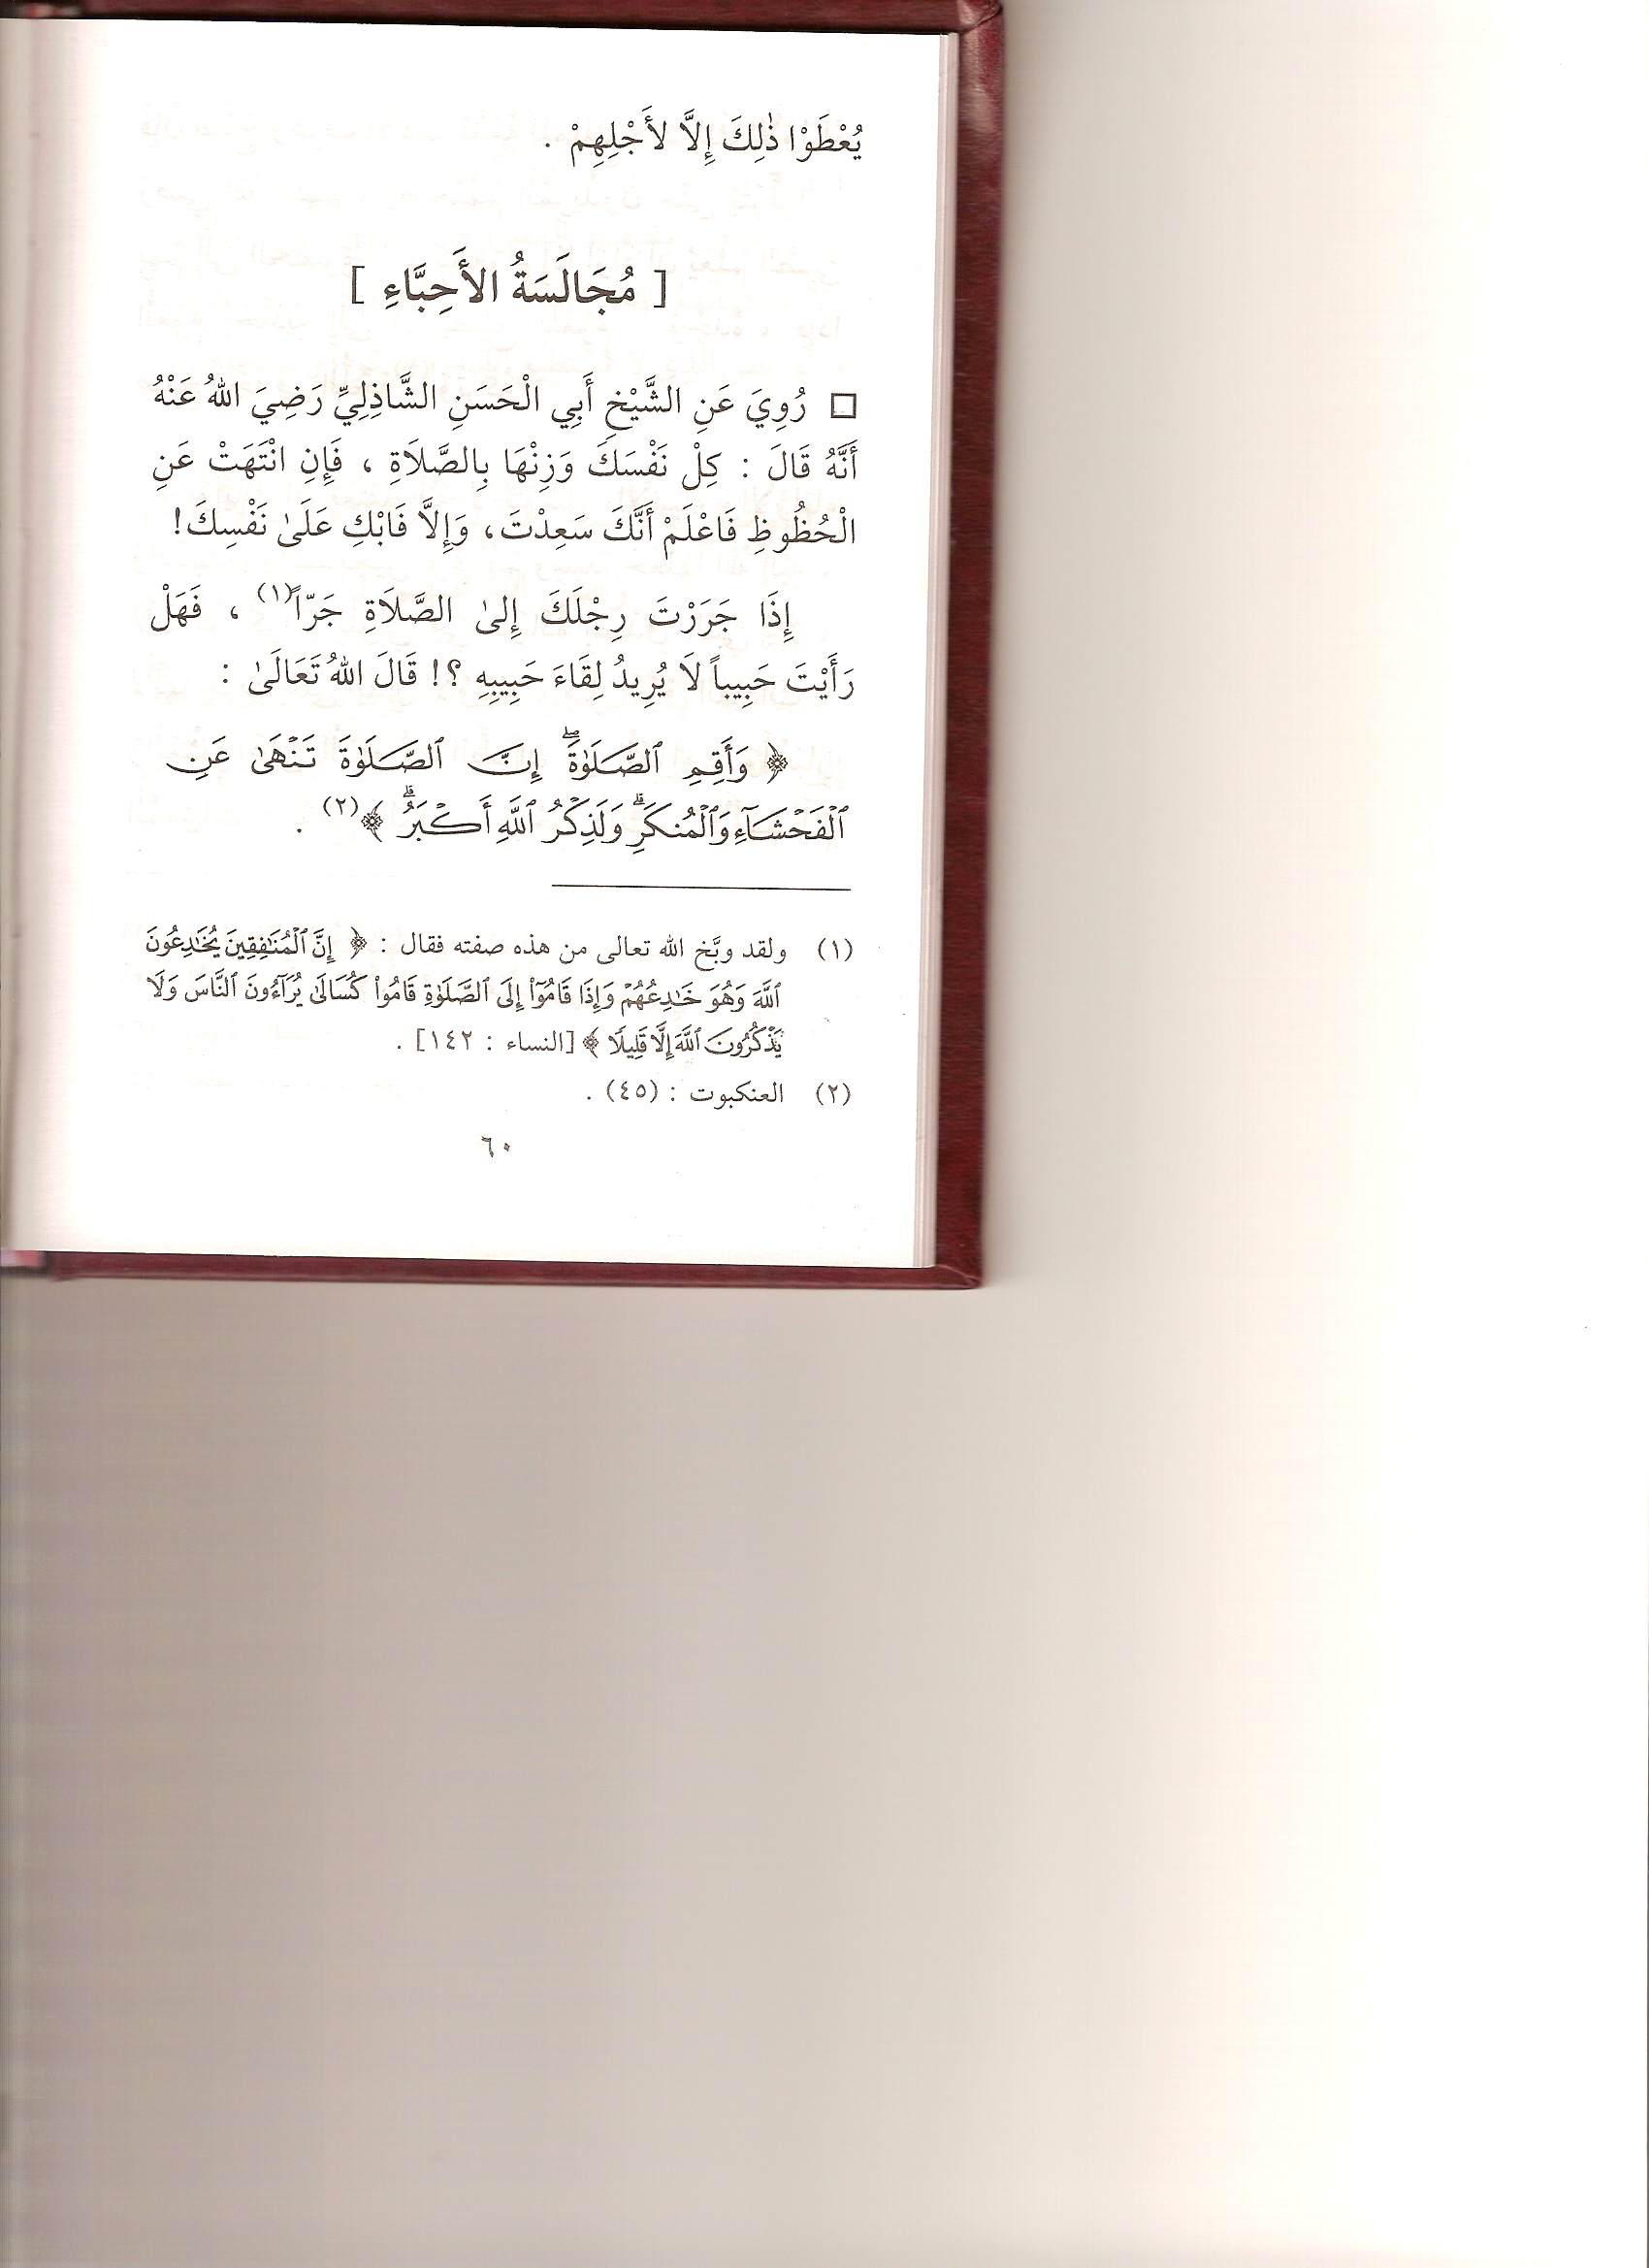 يُعْطَوْا ذٰلِكَ إِلَّا لأَجْلِهِمْ .
[ مُجَالَسَةُ الأَحِبَّاءِ ]
□ رُوِيَ عَنِ الشَّيْخِ أَبِي الْحَسَنِ الشَّاذِلِيِّ رَضِيَ اللهُ عَنْهُ
أَنَّهُ قَالَ : كِلْ نَفْسَكَ وَزِنْهَا بِالصَّلاَةِ ، فَإِنِ انْتَهَتْ عَنِ
الْحُظُوظِ فَاعْلَمْ أَنَّكَ سَعِدْتَ، وَإِلَّا فَابْكِ عَلَىٰ نَفْسِكَ!
إِذَا جَرَرْتَ رِجْلَكَ إِلىٰ الصَّلاَةِ جَرّاً(١) ، فَهَلْ
رَأَيْتَ حَبِيباً لاَ يُرِيدُ لِقَاءَ حَبِيبِهِ ؟! قَالَ اللهُ تَعَالَىٰ :
﴿ وَأَقِمِ ٱلصَّلَوٰةَۖ إِنَّ ٱلصَّلَوٰةَ تَنْهَىٰ عَنِ
ٱلْفَحْشَآءِ وَٱلْمُنكَرِۗ وَلَذِكْرُ ٱللَّهِ أَكْبَرُۗ ﴾(٢) .
(١) ولقد وبَّخ الله تعالى من هذه صفته فقال : ﴿ إِنَّ ٱلْمُنَٰفِقِينَ يُخَٰدِعُونَ
ٱللَّهَ وَهُوَ خَٰدِعُهُمْ وَإِذَا قَامُوٓا۟ إِلَى ٱلصَّلَوٰةِ قَامُوا۟ كُسَالَىٰ يُرَآءُونَ ٱلنَّاسَ وَلَا
يَذْكُرُونَ ٱللَّهَ إِلَّا قَلِيلًا ﴾ [النساء : ١٤٢] .
(٢) العنكبوت : (٤٥) .
٦٠